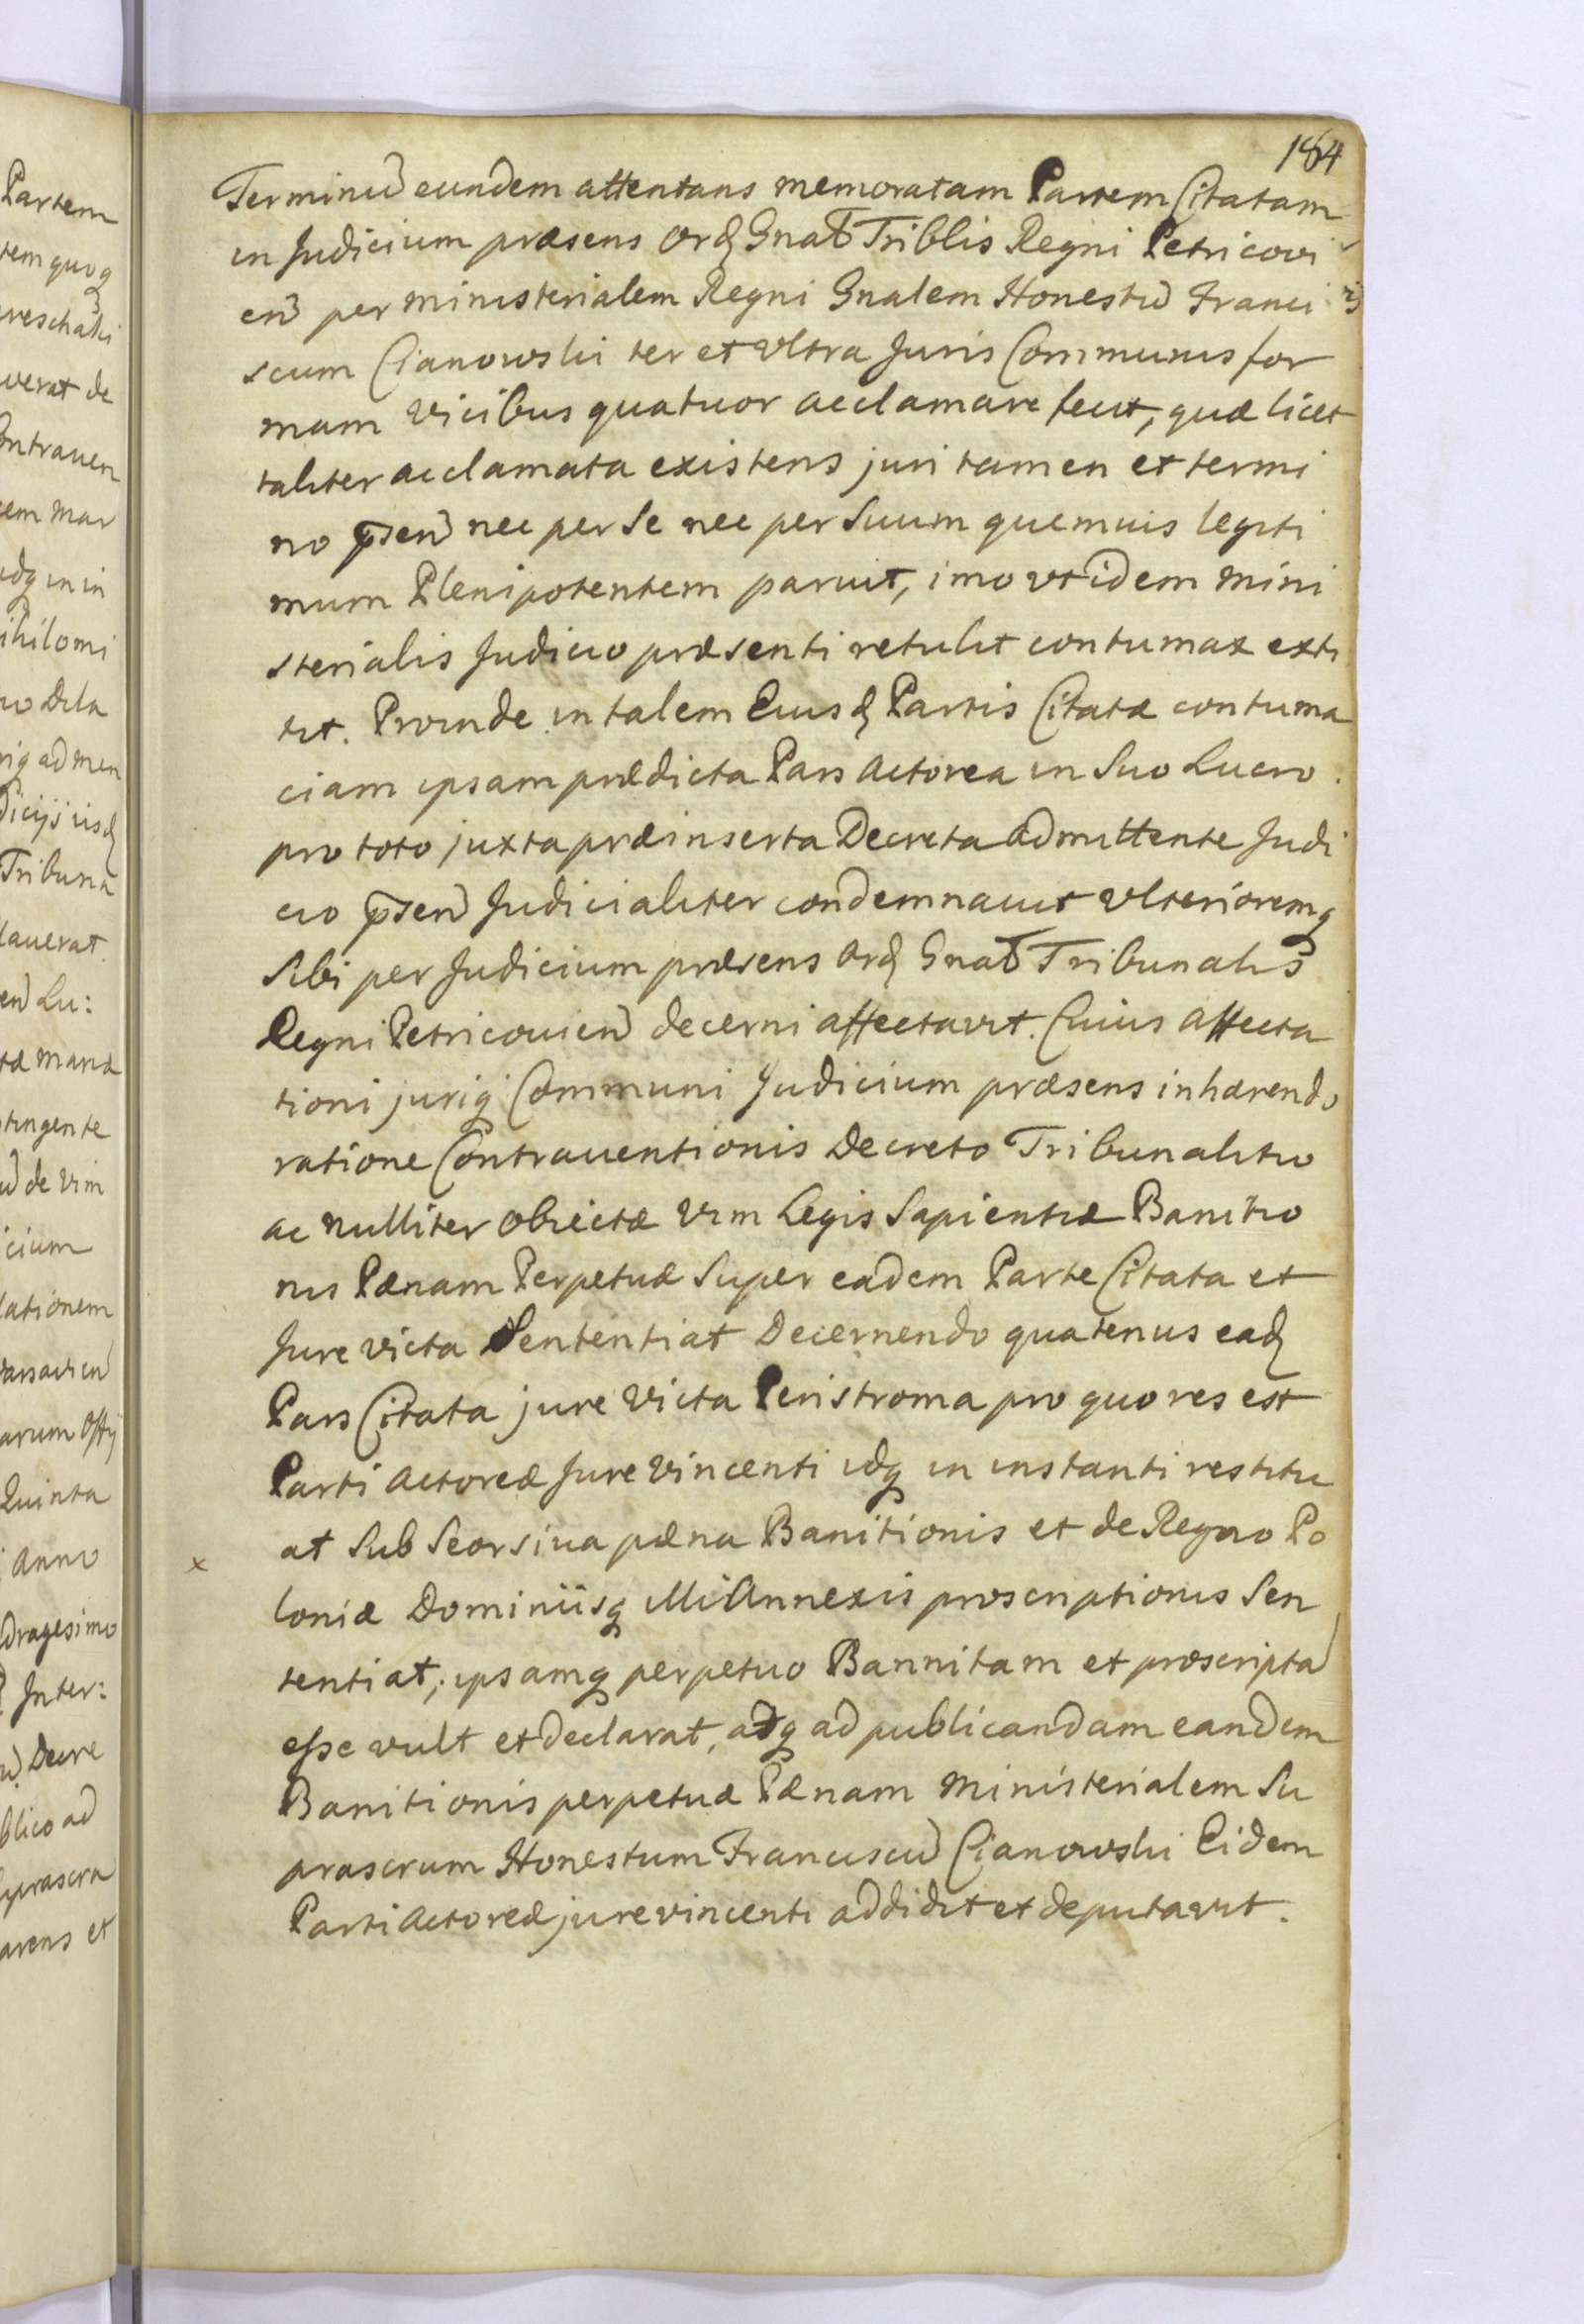 184
Terminũ eundem attentans memoratam Partem Citatam
in Judicium præsens Ordꝫ Gnał Triblis Regni Petricovi
eñ per ministerialem Regni Gnalem Honestũ Franci
scum Cianowski ter et vltra Juris Communis for
mam vicibus quatuor acclamare fecit, quæ licet
taliter acclamata existens juri tamen et termi
no p̃señ nec per se nec per suum quemuis legiti
mum Plenipotentem paruit, imo vt idem mini
sterialis Judicio præsenti retulit contumax exti
tit. Proinde in talem Eiusdꝫ Partis Citatæ contuma
ciam ipsam prædicta Pars Actorea in suo Lucro
pro toto juxta præinserta Decreta admittente Judi
cio p̃señ Judicialiter condemnauit vlterioremqꝫ
sibi per Judicium præsens Ordꝫ Gnał Tribunalis
Regni Petricouieñ decerni affectavit. Cuius affecta
tioni juriqꝫ Communi Judicium præsens inhærendo
ratione Contrauentionis Decreto Tribunalitio
ac nulliter obiectæ vim Legis sapientiæ Banitio
nis Pænam Perpetuæ super eadem Parte Citata et
Jure victa Sententiat Decernendo quatenus eadꝫ
Pars Citata jure victa Peristroma pro quo res est
Parti Actoreæ Jure vincenti idqꝫ in instanti restitu
at sub seorsiua pæna Banitionis et de Regno Po
x
loniæ Dominiisqꝫ illi Annexis proscriptionis sen
tentiat, ipsamqꝫ perpetuo Bannitam et proscriptã
esse vult et declarat, atqꝫ ad publicandam eandem
Banitionis perpetuæ Pænam ministerialem su
prascrum Honestum Franciscũ Cianowski Eidem
Parti Actoreæ jure vincenti addidit et deputavit.